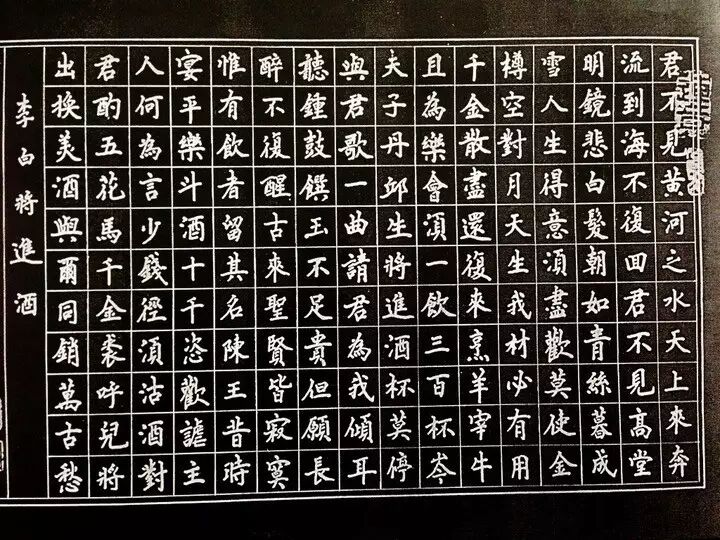 君不見黃河之水天上來奔
流到海不復回君不見高堂
明鏡悲白髮朝如青絲暮成
雪人生得意須盡歡莫使金
樽空對月天生我材必有用
千金散盡還復來烹羊宰牛
且為樂會須一飲三百杯岑
夫子丹邱生將進酒杯莫停
與君歌一曲請君為我傾耳
聽鍾鼓饌玉不足貴但願長
醉不復醒古來聖賢皆寂寞
惟有飲者留其名陳王昔時
宴平樂斗酒十千恣歡謔主
人何為言少錢徑須沽酒對
君酌五花馬千金裘呼兒將
出換美酒與爾同銷萬古愁
李白將進酒